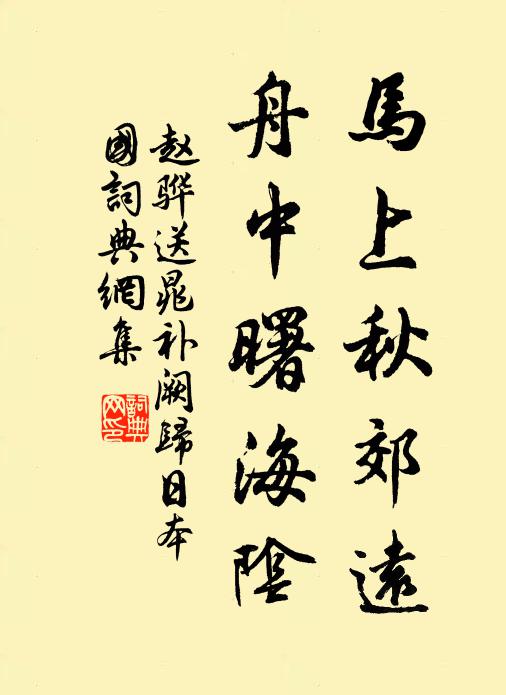 馬上秋郊遠
舟中曙海陰
赵骅送晁补阙歸日本
國詞典網集
詞典
网印